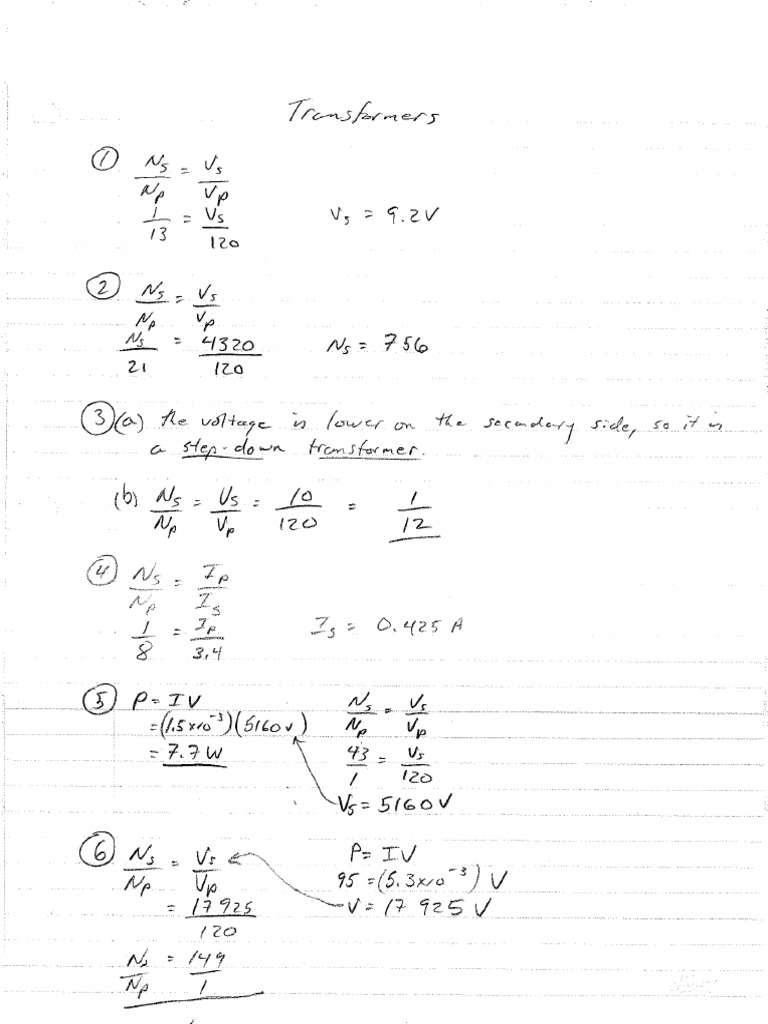 Transformers
① Ns/Np = Vs/Vp
1/13 = Vs/120 Vs = 9.2V
② Ns/Np = Vs/Vp
Ns/21 = 4320/120 Ns = 756
③ (a) the voltage is lower on the secondary side, so it is
a step-down transformer.
(b) Ns/Np = Vs/Vp = 10/120 = 1/12
④ Ns/Np = Ip/Is
1/8 = Ip/3.4 Is = 0.425 A
⑤ P = IV Ns/Np = Vs/Vp
= (1.5x10^-3)(5160v)
= 7.7W 43/1 = Vs/120
Vs = 5160V
⑥ Ns/Np = Vs/Vp P = IV
95 = (5.3x10^-3) V
= 17925/120 V = 17 925 V
Ns/Np = 149/1